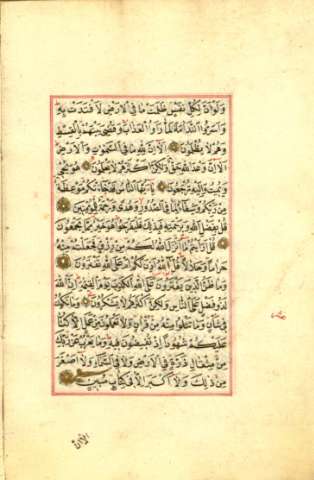 وَلَوْ اَنَّ لِكُلِّ نَفْسٍ ظَلَمَتْ مَا فِي الْاَرْضِ لَافْتَدَتْ بِهِ
وَاَسَرُّوا النَّدَامَةَ لَمَّا رَاَوُا الْعَذَابَ وَقُضِيَ بَيْنَهُمْ بِالْقِسْطِ
وَهُمْ لَا يُظْلَمُونَ اَلَا اِنَّ لِلّٰهِ مَا فِي السَّمٰوَاتِ وَالْاَرْضِ
اَلَا اِنَّ وَعْدَ اللّٰهِ حَقٌّ وَلٰكِنَّ اَكْثَرَهُمْ لَا يَعْلَمُونَ هُوَ يُحْيِي
وَيُمِيتُ وَاِلَيْهِ تُرْجَعُونَ يَا اَيُّهَا النَّاسُ قَدْ جَاءَتْكُمْ مَوْعِظَةٌ
مِنْ رَبِّكُمْ وَشِفَاءٌ لِمَا فِي الصُّدُورِ وَهُدًى وَرَحْمَةٌ لِلْمُؤْمِنِينَ
قُلْ بِفَضْلِ اللّٰهِ وَبِرَحْمَتِهِ فَبِذٰلِكَ فَلْيَفْرَحُوا هُوَ خَيْرٌ مِمَّا يَجْمَعُونَ
قُلْ اَرَاَيْتُمْ مَا اَنْزَلَ اللّٰهُ لَكُمْ مِنْ رِزْقٍ فَجَعَلْتُمْ مِنْهُ
حَرَامًا وَحَلَالًا قُلْ آللّٰهُ اَذِنَ لَكُمْ اَمْ عَلَى اللّٰهِ تَفْتَرُونَ
وَمَا ظَنُّ الَّذِينَ يَفْتَرُونَ عَلَى اللّٰهِ الْكَذِبَ يَوْمَ الْقِيٰمَةِ اِنَّ اللّٰهَ
لَذُو فَضْلٍ عَلَى النَّاسِ وَلٰكِنَّ اَكْثَرَهُمْ لَا يَشْكُرُونَ وَمَا تَكُونُ
فِي شَاْنٍ وَمَا تَتْلُوا مِنْهُ مِنْ قُرْاٰنٍ وَلَا تَعْمَلُونَ مِنْ عَمَلٍ اِلَّا كُنَّا
عَلَيْكُمْ شُهُودًا اِذْ تُفِيضُونَ فِيهِ وَمَا يَعْزُبُ عَنْ رَبِّكَ
مِنْ مِثْقَالِ ذَرَّةٍ فِي الْاَرْضِ وَلَا فِي السَّمَاءِ وَلَا اَصْغَرَ
مِنْ ذٰلِكَ وَلَا اَكْبَرَ اِلَّا فِي كِتَابٍ مُبِينٍ